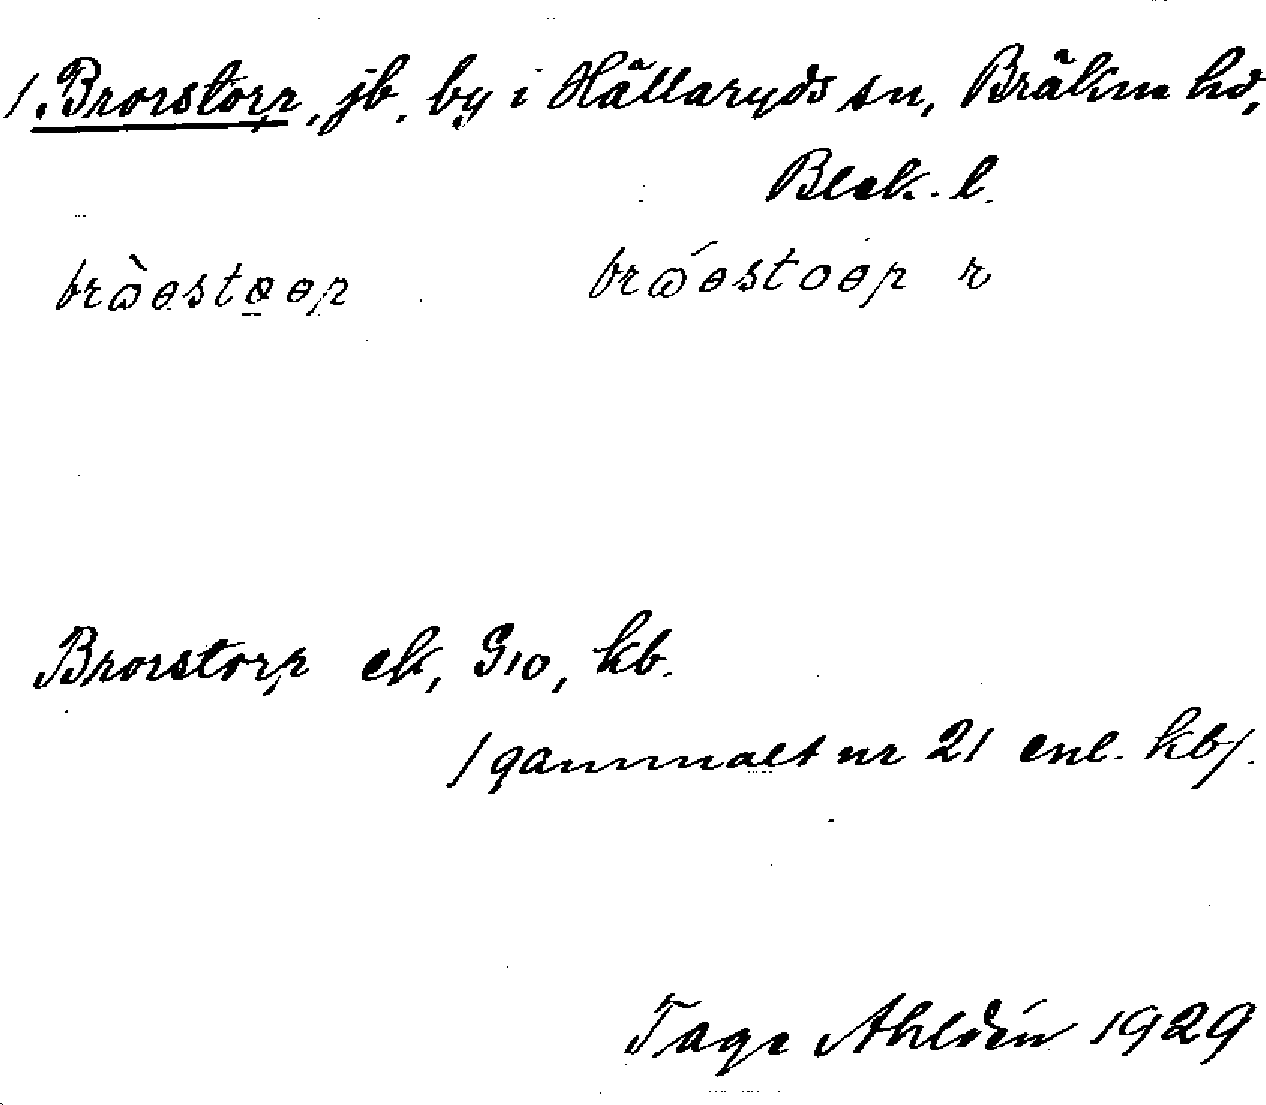 1. Brorstorp, jb. by i Hällaryds sn, Bräkne hd,
Blek. l.
bròəstɵəp bróəstoəp r
Brorstorp ek, G10, kb.
/gammalt nr 21 enl. kb/.
Tage Ahldén 1929